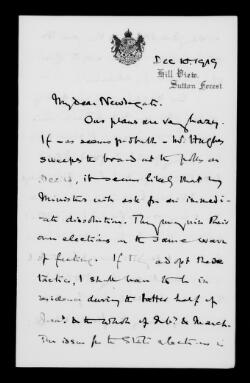 Dec 10. 1919
Hill View,
Sutton Forest.
My dear Newdegate.
Our plans are very hazy.
If - as seems probable - Mr Hughes
sweeps the board at the polls on
Dec 13, it seems likely that my
Ministers will ask for an immedi-
ate dissolution. They may win their
own elections on the same wave
of feeling. If they adopt these
tactics, I shall have to be in
residence during the latter half of
Jany. & the whole of Feby. & March.
The issue for the State elections is